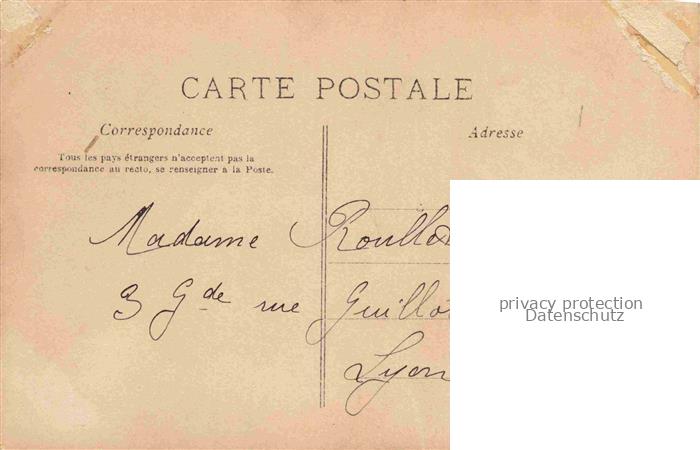 CARTE POSTALE
Correspondance
Adresse
Tous les pays étrangers n'acceptent pas la
correspondance au recto, se renseigner à la Poste.
Madame
3 Gde rue
Lyon
privacy protection
Datenschutz